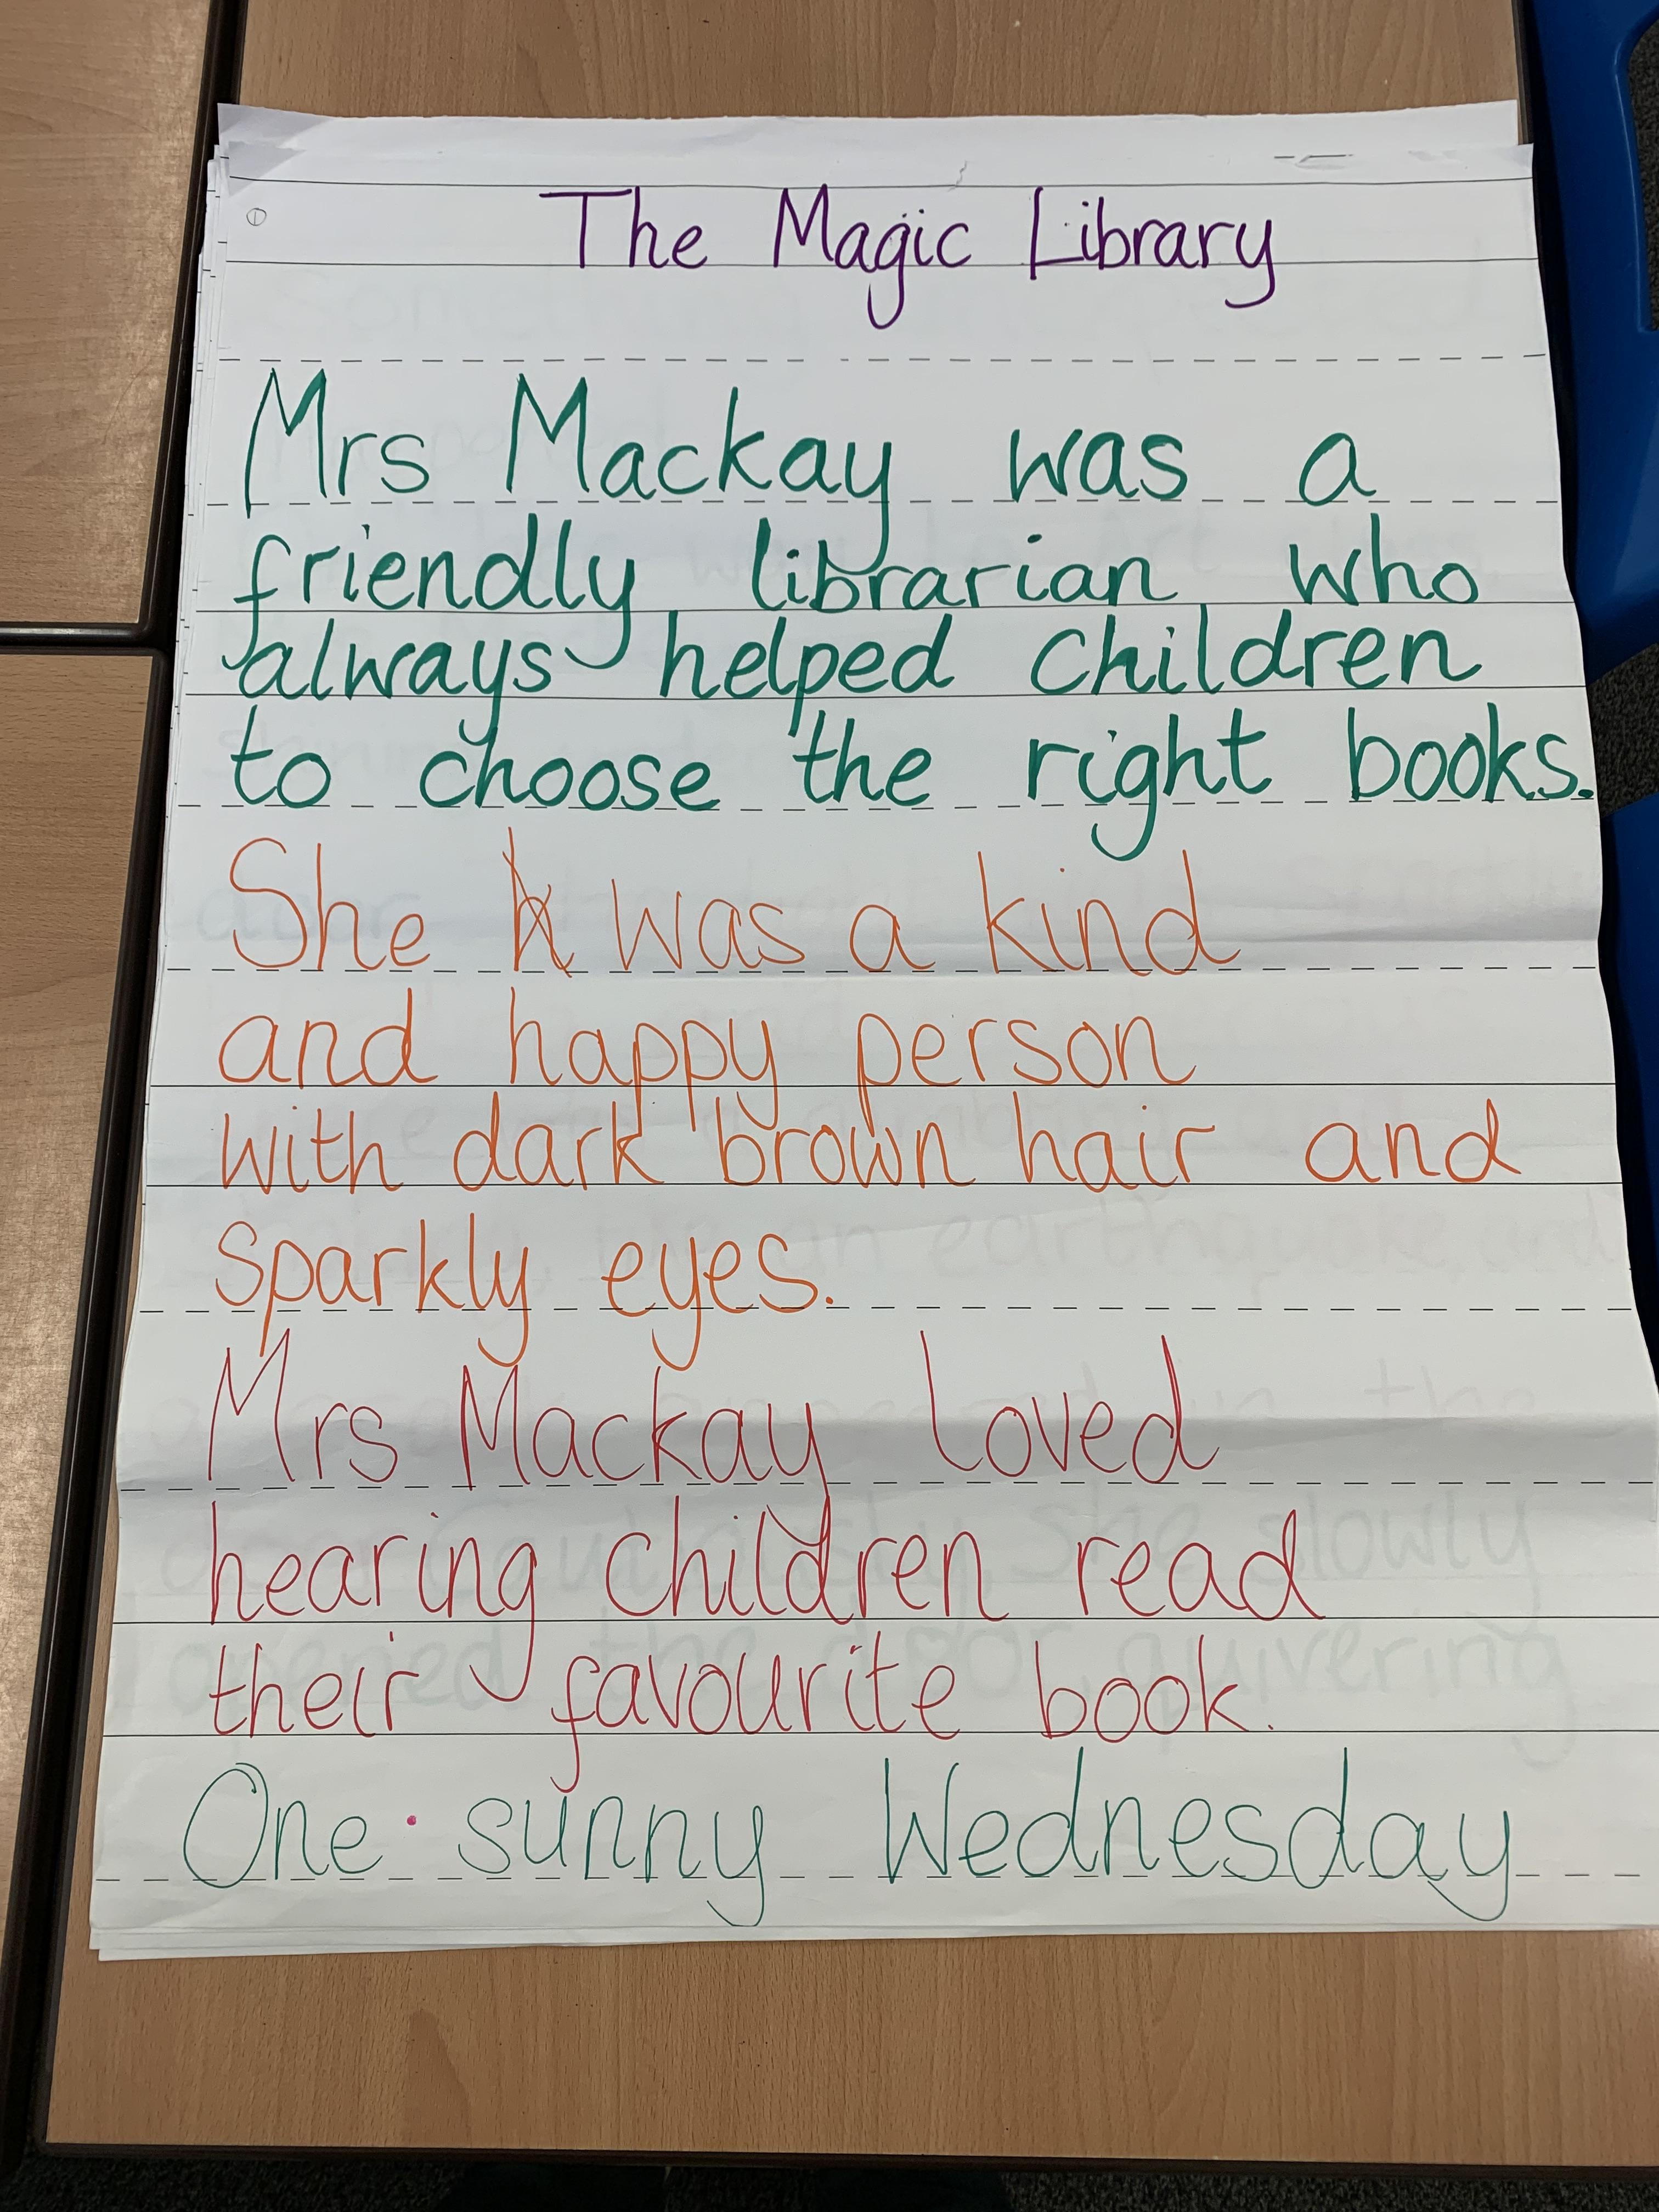 ①
The Magic Library
Mrs Mackay was a
friendly librarian who
always helped children
to choose the right books.
She was a kind
and happy person
with dark brown hair and
sparkly eyes.
Mrs Mackay loved
hearing children read
their favourite book.
One sunny Wednesday